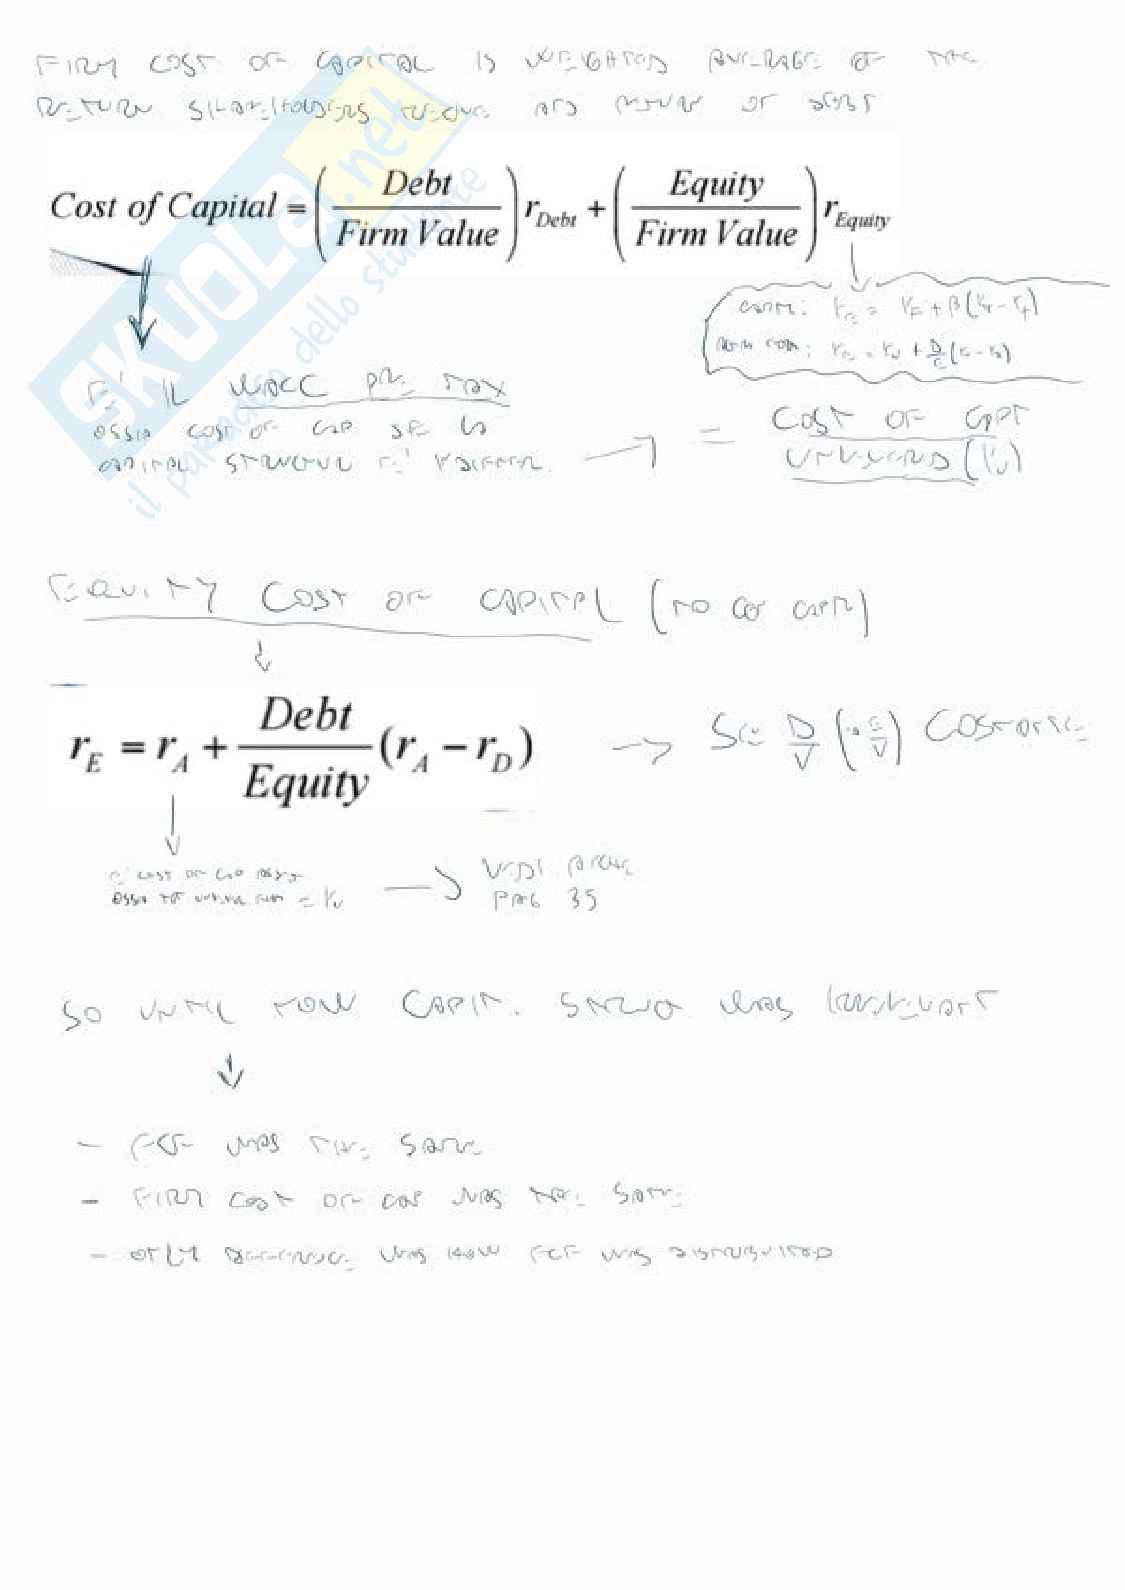 FIRM COST OF CAPITAL IS WEIGHTED AVERAGE OF THE
RETURN SHAREHOLDERS REQUIRE AND RETURN OF DEBT
Cost of Capital = (Debt / Firm Value) r_Debt + (Equity / Firm Value) r_Equity
CAPM: r_E = r_F + β(r_M - r_F)
r_E = r_U + D/E (r_U - r_D)
E' IL WACC PRE TAX
OSSIA COST OF CAP SE LA
CAPITAL STRUCTURE E'
= COST OF CAPT
UNLEVERED (r_U)
EQUITY COST OF CAPITAL (NO CAPM)
r_E = r_A + Debt / Equity (r_A - r_D)
SE D/V (E/V) COSTANTE
E' COST OF CAP
OSSIA = r_U
VEDI ANCHE
PAG 35
SO UNTIL NOW CAPIT. WAS IRRELEVANT
- FCF WAS THE SAME
- FIRM COST OF CAP WAS THE SAME
- ONLY DIFFERENCE WAS HOW FCF WAS DISTRIBUTED
SKUOLA.net
il paradiso dello studente